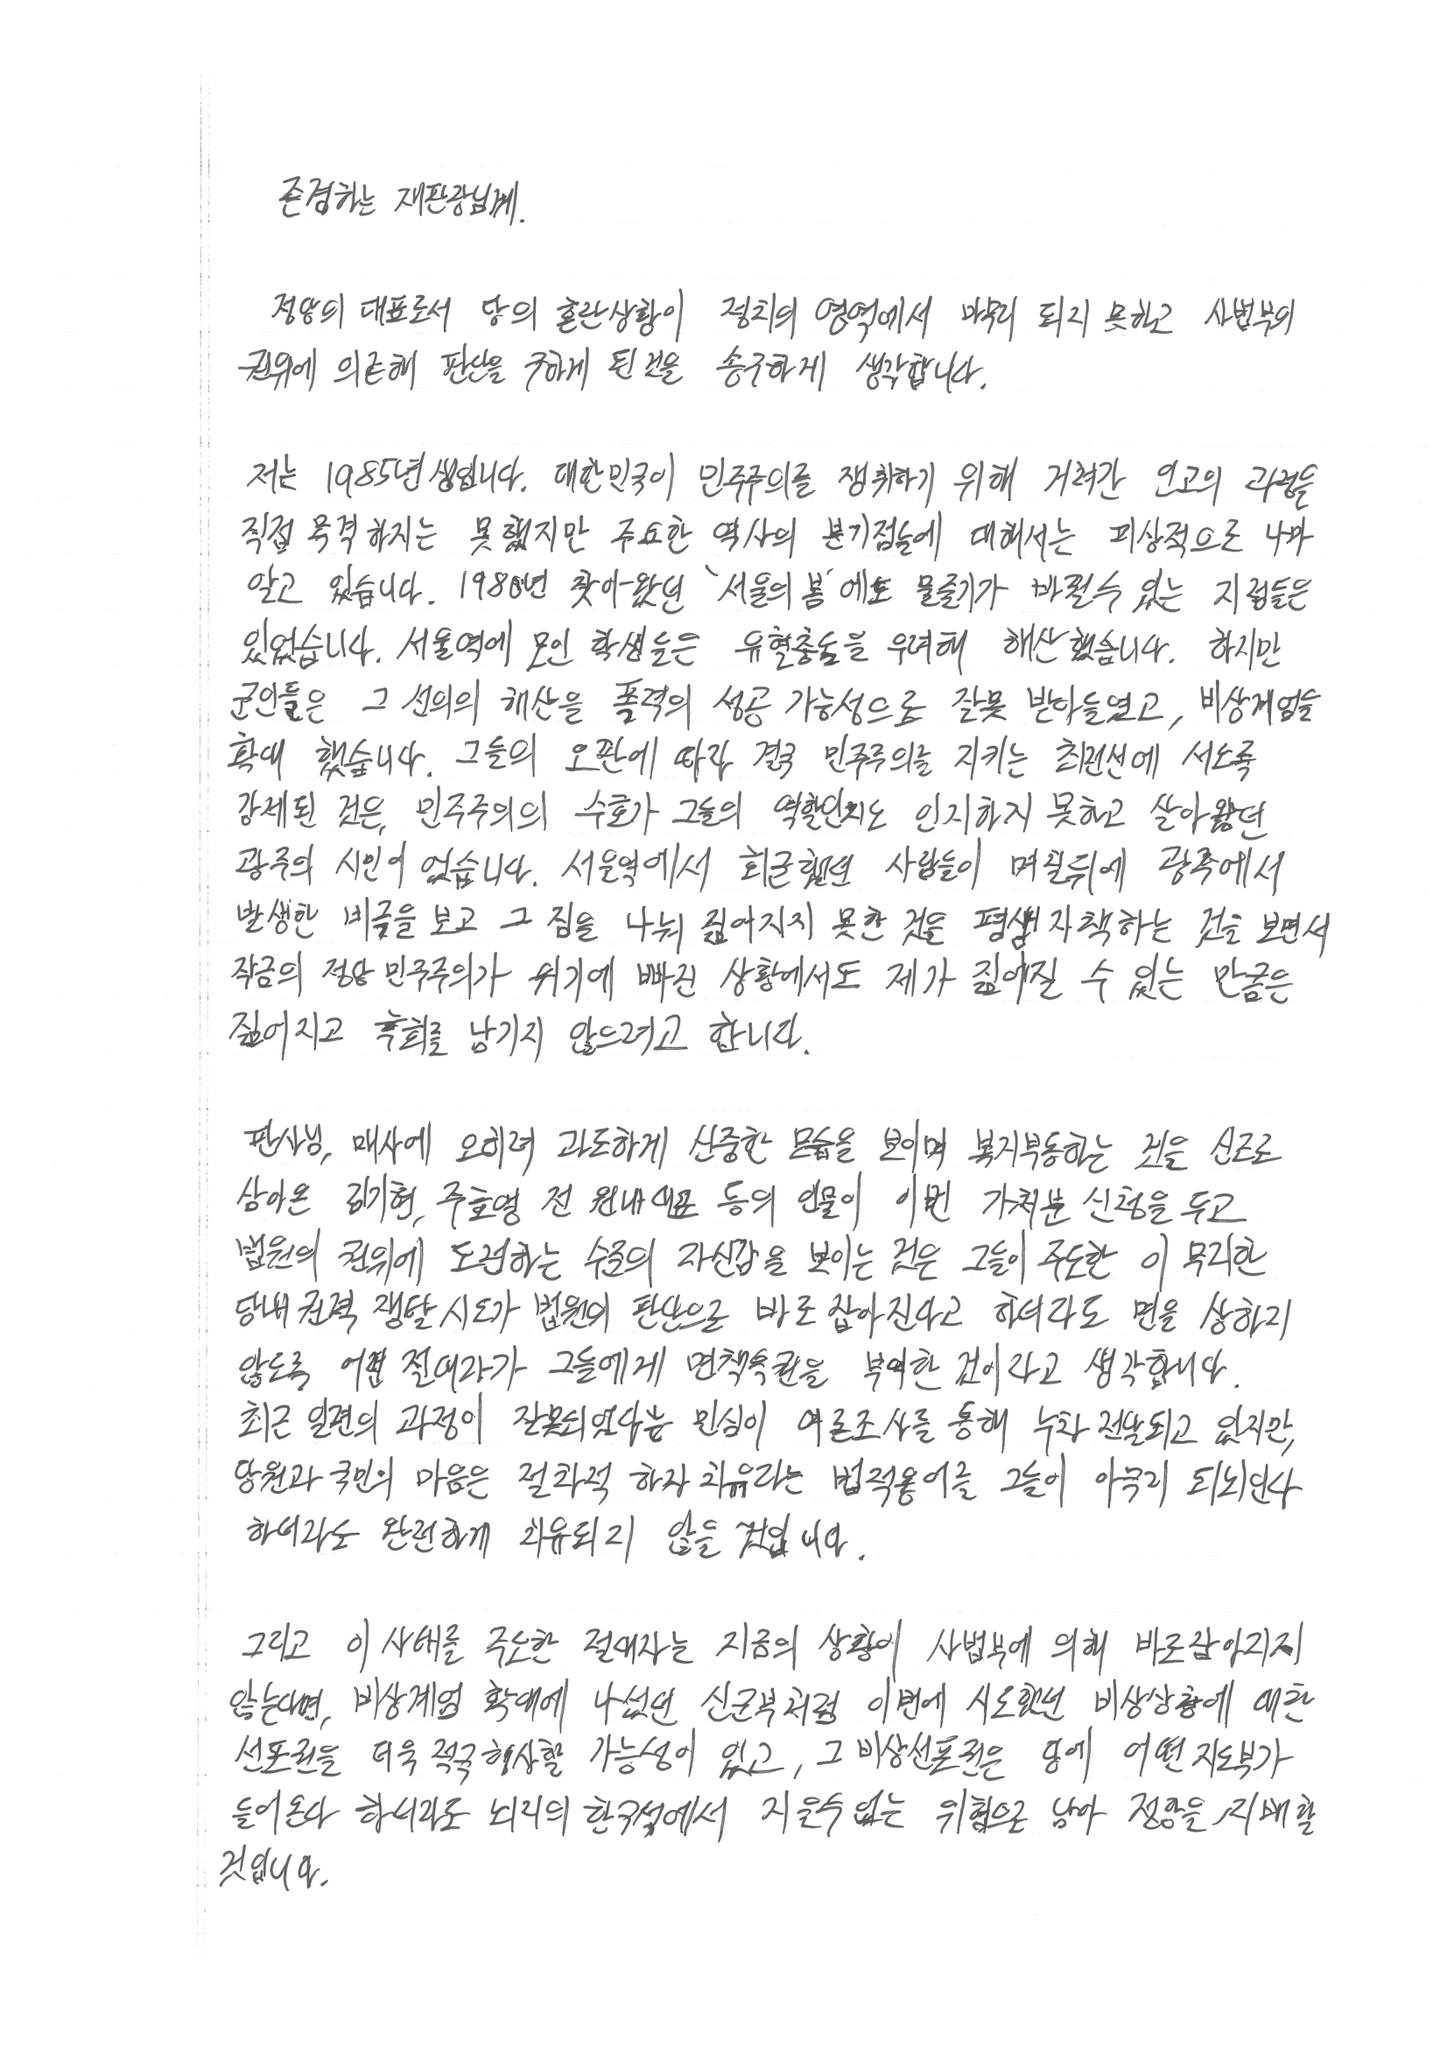 존경하는 재판장님께.
정당의 대표로서 당의 혼란상황이 정치의 영역에서 마무리 되지 못하고 사법부의
권위에 의존해 판단을 구하게 된 것을 송구하게 생각합니다.
저는 1985년생입니다. 대한민국이 민주주의를 쟁취하기 위해 거쳐간 인고의 과정을
직접 목격하지는 못했지만 주요한 역사의 분기점들에 대해서는 피상적으로 나마
알고 있습니다. 1980년 찾아왔던 '서울의 봄'에도 물줄기가 바뀔수 있는 지점들은
있었습니다. 서울역에 모인 학생들은 유혈충돌을 우려해 해산했습니다. 하지만
군인들은 그 선의의 해산을 폭력의 성공 가능성으로 잘못 받아들였고, 비상계엄을
확대 했습니다. 그들의 오판에 따라 결국 민주주의를 지키는 최전선에 서도록
강제된 것은, 민주주의의 수호가 그들의 역할인지도 인지하지 못하고 살아왔던
광주의 시민이 었습니다. 서울역에서 회군했던 사람들이 며칠뒤에 광주에서
발생한 비극을 보고 그 짐을 나눠 짊어지지 못한 것을 평생 자책하는 것을 보면서
작금의 정당 민주주의가 위기에 빠진 상황에서도 제가 짊어질 수 있는 만큼은
짊어지고 후회를 남기지 않으려고 합니다.
판사님, 매사에 오히려 과도하게 신중한 모습을 보이며 복지부동하는 것을 신조로
삼아온 김기현, 주호영 전 원내대표 등의 인물이 이번 가처분 신청을 두고
법원의 권위에 도전하는 수준의 자신감을 보이는 것은 그들이 주도한 이 무리한
당내 권력 쟁탈 시도가 법원의 판단으로 바로 잡아진다고 하더라도 면을 상하지
않도록 어떤 절대자가 그들에게 면책특권을 부여한 것이라고 생각합니다.
최근 일련의 과정이 잘못되었다는 민심이 여론조사를 통해 누차 전달되고 있지만,
당원과 국민의 마음은 절차적 하자 치유라는 법적용어를 그들이 아무리 되뇌인다
하더라도 완전하게 치유되지 않을 것입니다.
그리고 이 사태를 주도한 절대자는 지금의 상황이 사법부에 의해 바로잡아지지
않는다면, 비상계엄 확대에 나섰던 신군부처럼 이번에 시도했던 비상상황에 대한
선포권을 더욱 적극행사할 가능성이 있고, 그 비상선포권은 당에 어떤 지도부가
들어온다 하더라도 뇌리의 한구석에서 지울수 없는 위협으로 남아 정당을 지배할
것입니다.